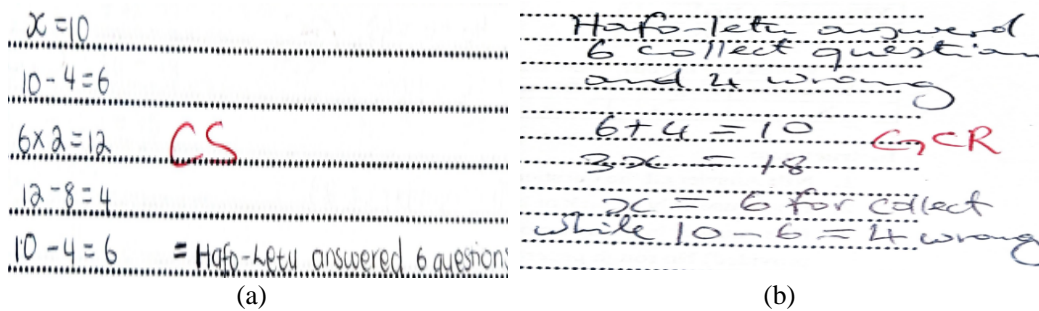 x =10
10 - 4 = 6
6 x 2 = 12 CS
12 - 8 = 4
10 - 4 = 6 = Hafo-Letu answered 6 questions
(a)
Hafo-letu answerd
6 collect question
and 4 wrong
6 + 4 = 10 CR
3x = 18
x = 6 for collect
while 10 - 6 = 4 wrong
(b)